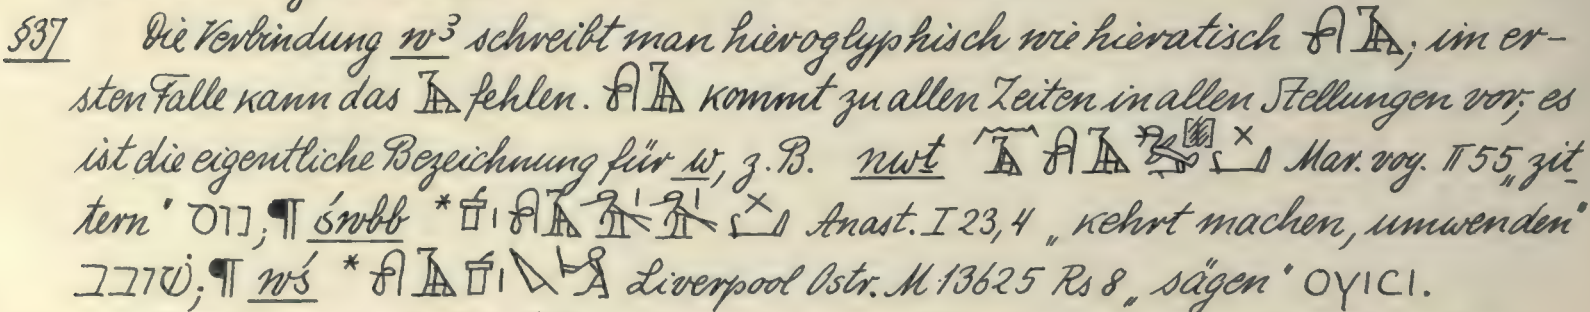 §37 Die Verbindung w³ schreibt man hieroglyphisch wie hieratisch 𓍯𓄿; im er-
sten Falle kann das 𓄿 fehlen. 𓍯𓄿 kommt zu allen Zeiten in allen Stellungen vor; es
ist die eigentliche Bezeichnung für w, z.B. nwt 𓈖𓄿𓍯𓄿 Mar. voy. II 55 „zit-
tern" נוט; ¶ śwbb * 𓍯𓄿 Anast. I 23,4 „kehrt machen, umwenden"
שׁובב; ¶ wś * 𓍯𓄿 Liverpool Ostr. M 13625 Rs 8 „sägen" ⲟⲩⲓⲥⲓ.